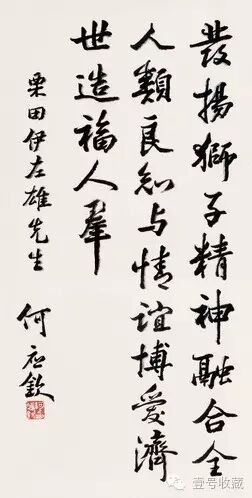 發揚獅子精神融合全
人類良知与情谊博愛濟
世造福人羣
栗田伊左雄先生
何应欽
壹号收藏